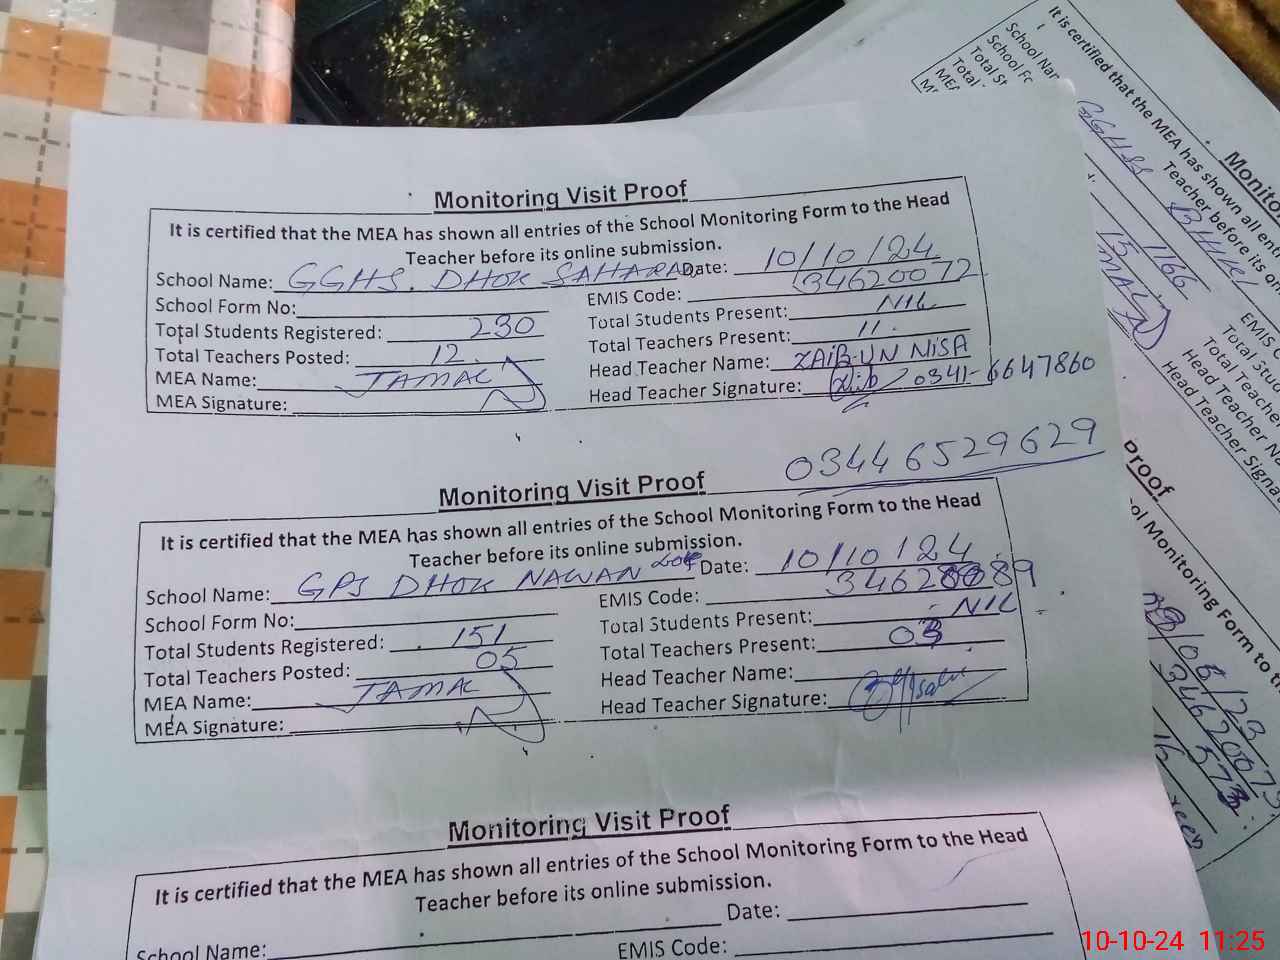 Monitoring Visit Proof
It is certified that the MEA has shown all entries of the School Monitoring Form to the Head
Teacher before its online submission.
School Name: GGHS. DHOK SAHARAD Date: 10/10/24
School Form No: EMIS Code: 34620072
Total Students Registered: 230 Total Students Present: NIL
Total Teachers Posted: 12. Total Teachers Present: 11.
MEA Name: JAMAL Head Teacher Name: ZAIB-UN NISA
MEA Signature: Head Teacher Signature: Zib 0341-6647860
03446529629
Monitoring Visit Proof
It is certified that the MEA has shown all entries of the School Monitoring Form to the Head
Teacher before its online submission.
School Name: GPS DHOK NAWAN Date: 10/10/24
School Form No: EMIS Code: 34620089
Total Students Registered: 151 Total Students Present: NIL
Total Teachers Posted: 05 Total Teachers Present: 03
MEA Name: JAMAL Head Teacher Name:
MEA Signature: Head Teacher Signature:
Monitoring Visit Proof
It is certified that the MEA has shown all entries of the School Monitoring Form to the Head
Teacher before its online submission.
Date:
School Name: EMIS Code:
It is certified that the MEA has shown all
Teacher before its on
School Nar
School Fo
Total St
Total
MEA
GGHSS
1166
15
EMIS C
Total Stud
Total Teacher
Head Teacher Na
Head Teacher Signa
Proof
ol Monitoring Form to t
/06/23
34620073
573
16
10-10-24 11:25